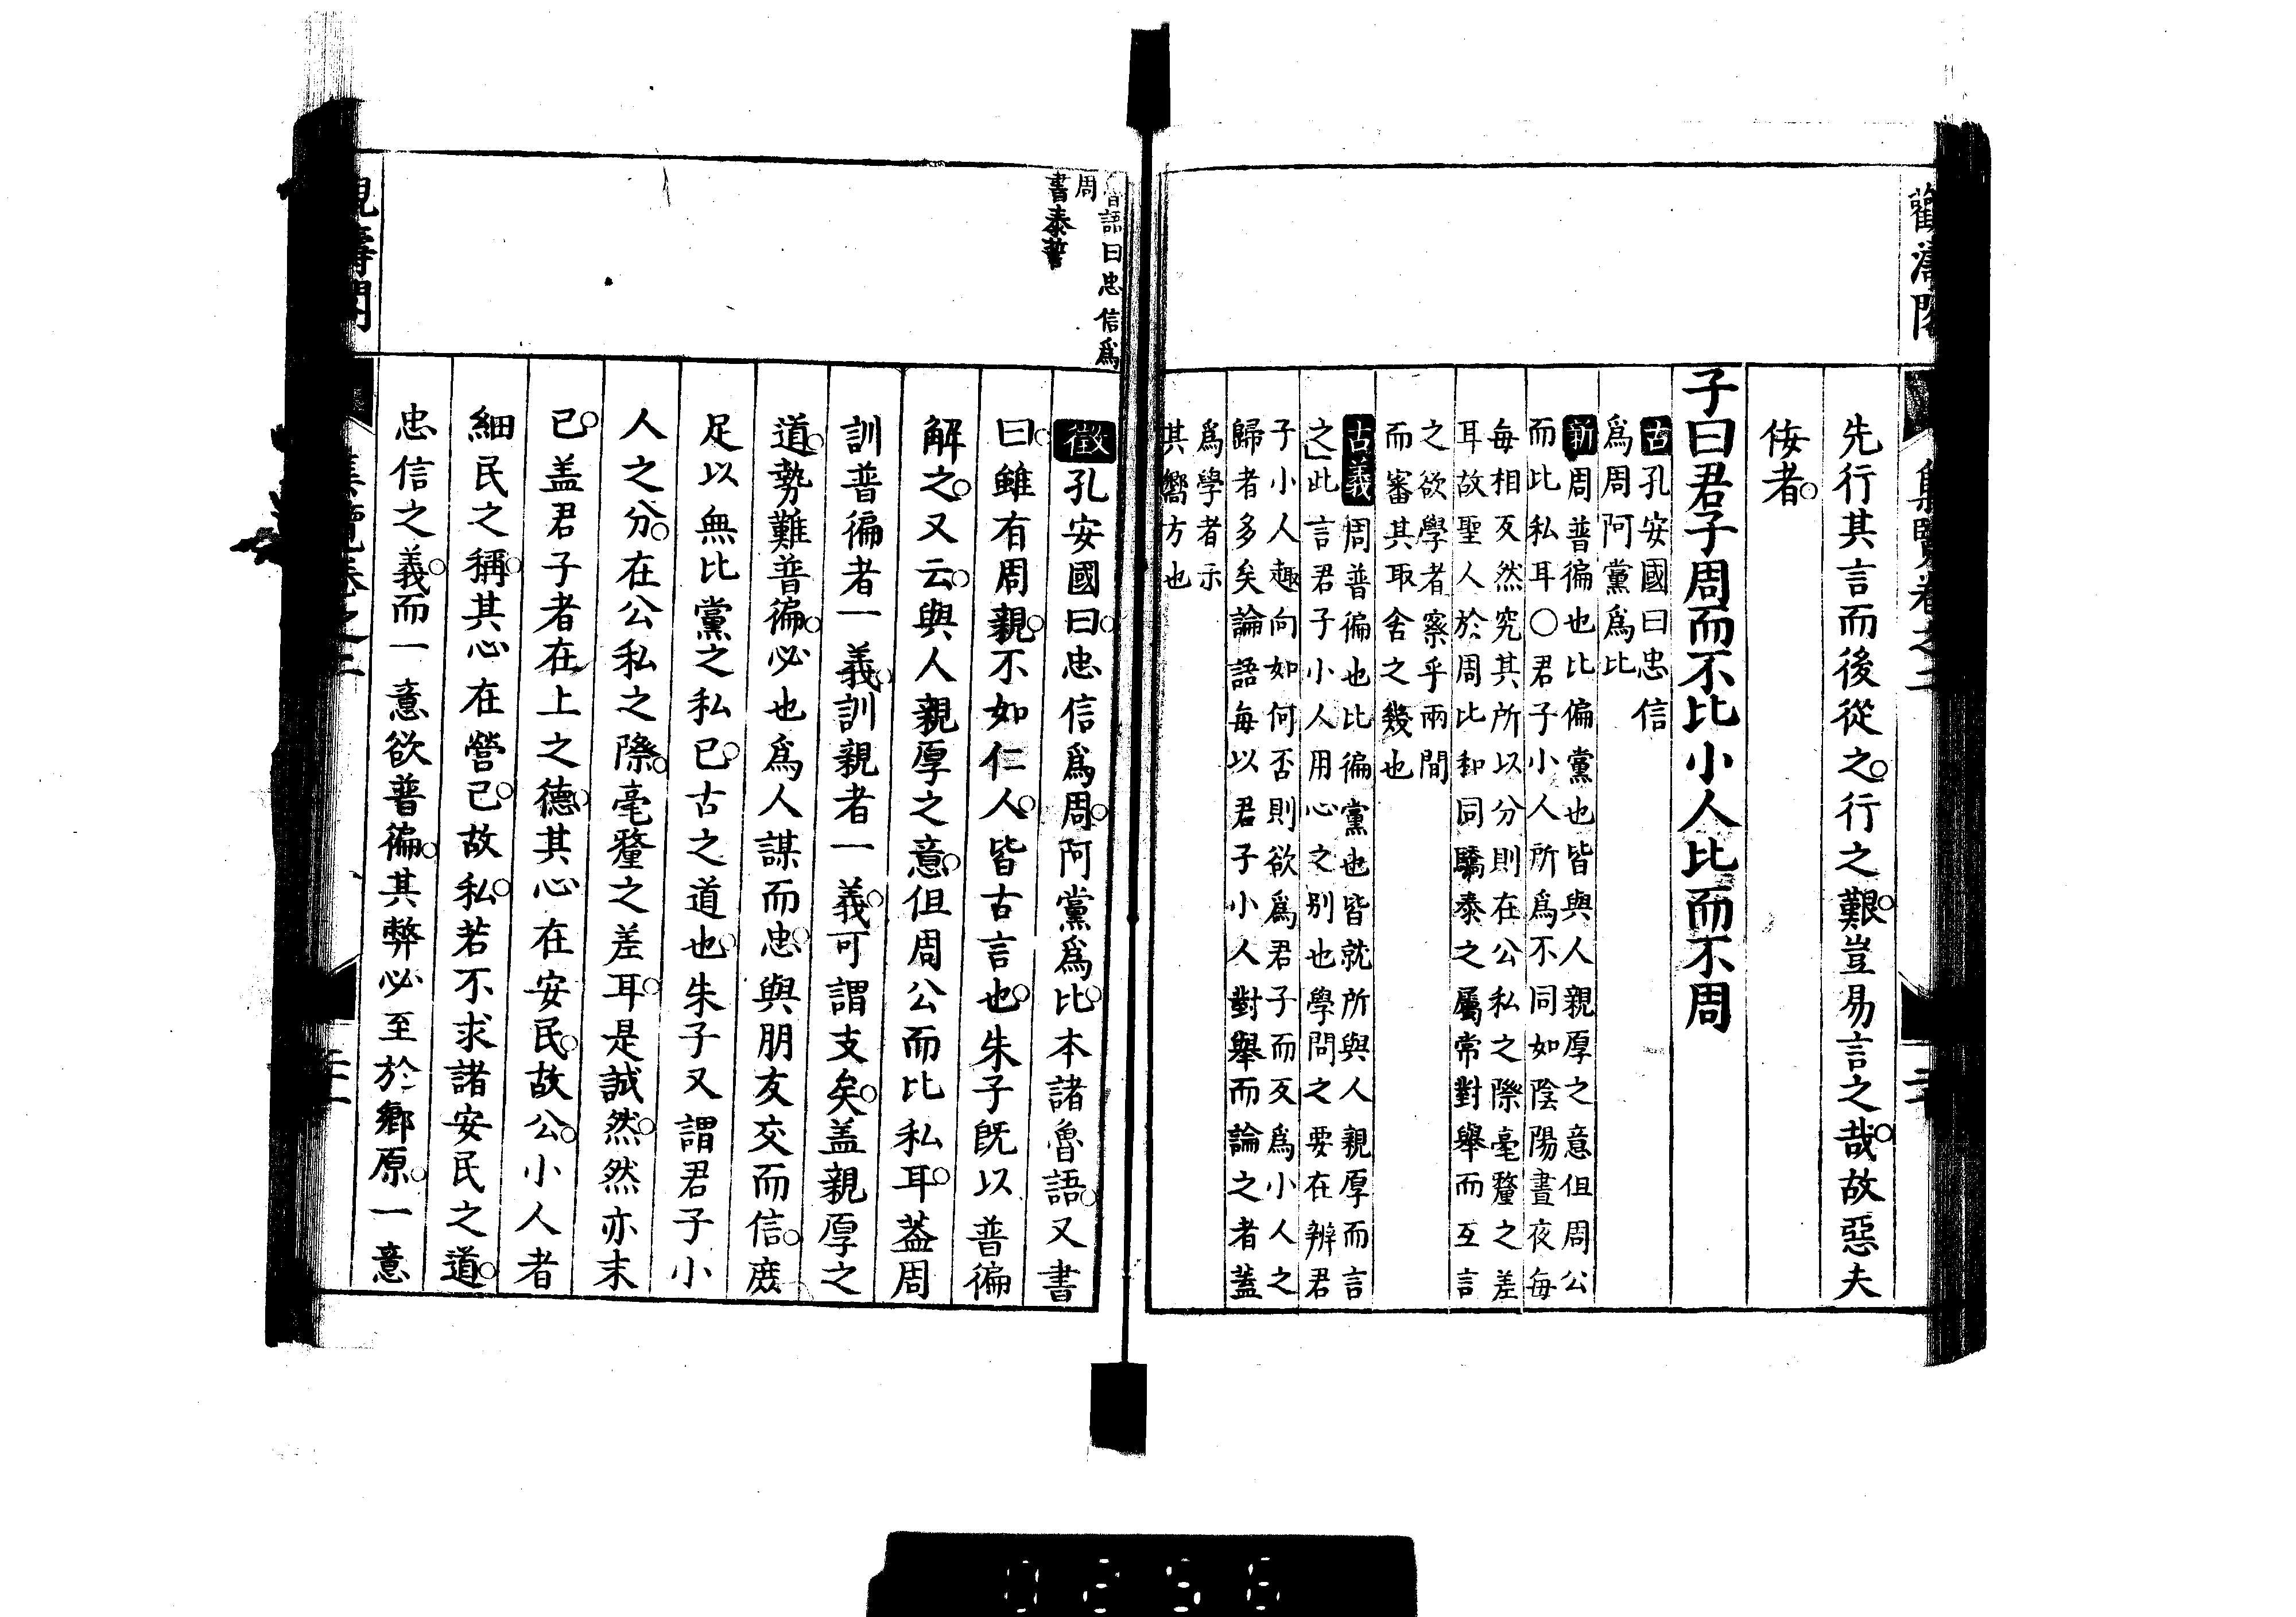 先行其言而後從之。行之艱。豈易言之哉。故惡夫
侫者。
子曰君子周而不比小人比而不周
古孔安國曰忠信
爲周阿黨爲比
新周普徧也比偏黨也皆與人親厚之意但周公
而比私耳○君子小人所爲不同如陰陽晝夜每
每相反然究其所以分則在公私之際毫釐之差
耳故聖人於周比和同驕泰之屬常對舉而互言
之欲學者察乎兩間
而審其取舍之幾也
古義周普徧也比徧黨也皆就所與人親厚而言
之」此言君子小人用心之別也學問之要在辨君
子小人趣向如何否則欲爲君子而反爲小人之
歸者多矣論語每以君子小人對舉而論之者蓋
爲學者示
其嚮方也
觀濤閣
集覽卷之二
語曰忠信爲
周
書泰誓
徵孔安國曰。忠信爲周。阿黨爲比。本諸魯語。又書
曰。雖有周親。不如仁人。皆古言也。朱子既以普徧
解之。又云。與人親厚之意。但周公而比私耳。蓋周
訓普徧者一義。訓親者一義。可謂支矣。盖親厚之
道。勢難普徧。必也爲人謀而忠。與朋友交而信。庶
足以無比黨之私已。古之道也。朱子又謂君子小
人之分。在公私之際。毫釐之差耳。是誠然。然亦末
已。盖君子者在上之德。其心在安民。故公。小人者
細民之稱。其心在營己。故私。若不求諸安民之道。
忠信之義。而一意欲普徧。其弊必至於鄉原。一意